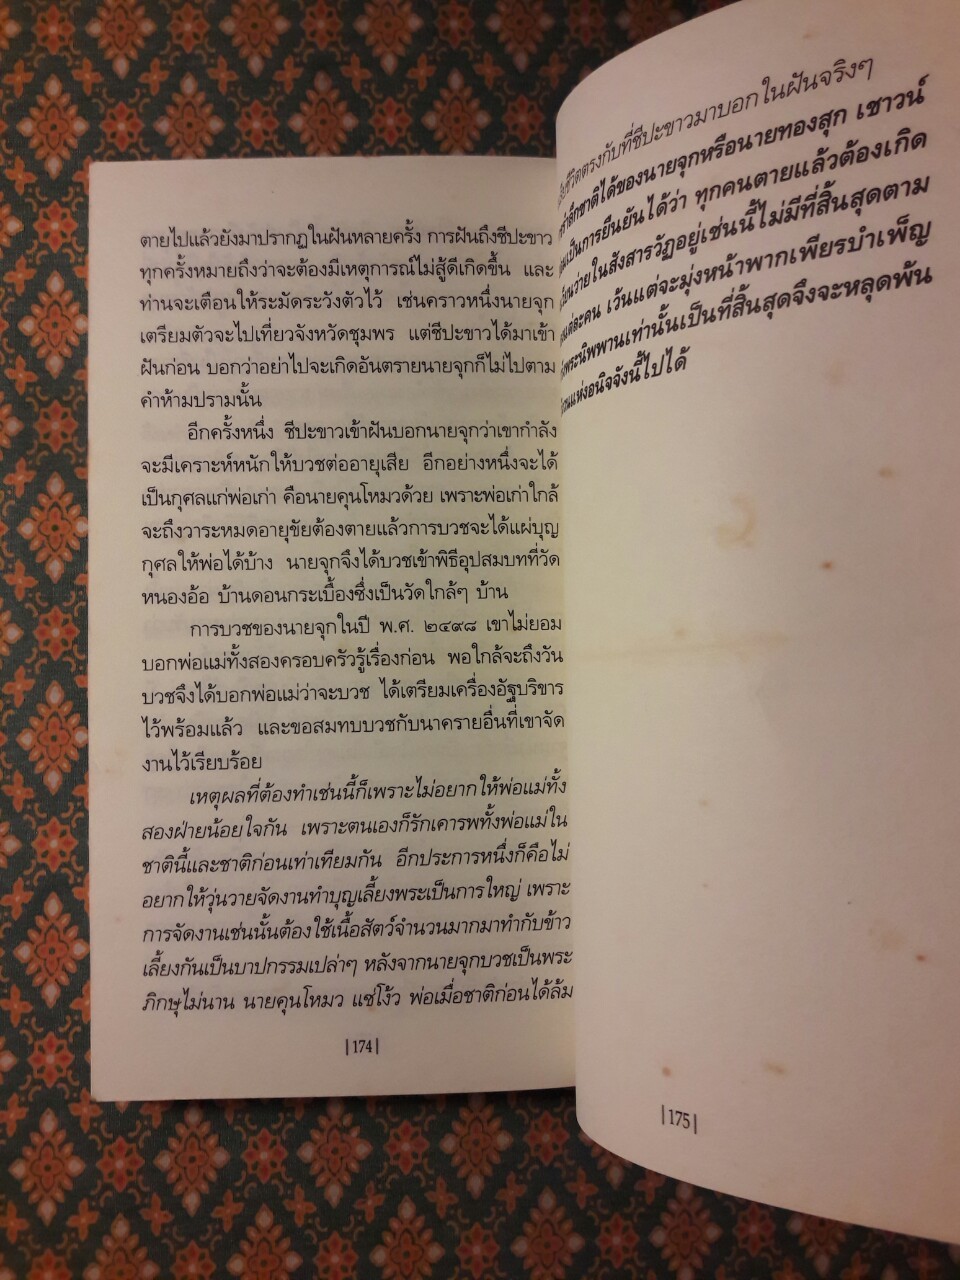 ตายไปแล้วยังมาปรากฏในฝันหลายครั้ง การฝันถึงชีปะขาว
ทุกครั้งหมายถึงว่าจะต้องมีเหตุการณ์ไม่สู้ดีเกิดขึ้น และ
ท่านจะเตือนให้ระมัดระวังตัวไว้ เช่นคราวหนึ่งนายจุก
เตรียมตัวจะไปเที่ยวจังหวัดชุมพร แต่ชีปะขาวได้มาเข้า
ฝันก่อน บอกว่าอย่าไปจะเกิดอันตรายนายจุกก็ไม่ไปตาม
คำห้ามปรามนั้น
อีกครั้งหนึ่ง ชีปะขาวเข้าฝันบอกนายจุกว่าเขากำลัง
จะมีเคราะห์หนักให้บวชต่ออายุเสีย อีกอย่างหนึ่งจะได้
เป็นกุศลแก่พ่อเก่า คือนายคุนโหมวด้วย เพราะพ่อเก่าใกล้
จะถึงวาระหมดอายุขัยต้องตายแล้วการบวชจะได้แผ่บุญ
กุศลให้พ่อได้บ้าง นายจุกจึงได้บวชเข้าพิธีอุปสมบทที่วัด
หนองอ้อ บ้านดอนกระเบื้องซึ่งเป็นวัดใกล้ๆ บ้าน
การบวชของนายจุกในปี พ.ศ. ๒๔๙๘ เขาไม่ยอม
บอกพ่อแม่ทั้งสองครอบครัวรู้เรื่องก่อน พอใกล้จะถึงวัน
บวชจึงได้บอกพ่อแม่ว่าจะบวช ได้เตรียมเครื่องอัฐบริขาร
ไว้พร้อมแล้ว และขอสมทบบวชกับนาครายอื่นที่เขาจัด
งานไว้เรียบร้อย
เหตุผลที่ต้องทำเช่นนี้ก็เพราะไม่อยากให้พ่อแม่ทั้ง
สองฝ่ายน้อยใจกัน เพราะตนเองก็รักเคารพทั้งพ่อแม่ใน
ชาตินี้และชาติก่อนเท่าเทียมกัน อีกประการหนึ่งก็คือไม่
อยากให้วุ่นวายจัดงานทำบุญเลี้ยงพระเป็นการใหญ่ เพราะ
การจัดงานเช่นนั้นต้องใช้เนื้อสัตว์จำนวนมากมาทำกับข้าว
เลี้ยงกันเป็นบาปกรรมเปล่าๆ หลังจากนายจุกบวชเป็นพระ
ภิกษุไม่นาน นายคุนโหมว แซ่โง้ว พ่อเมื่อชาติก่อนได้ล้ม
|174|
ชีวิตตรงกับที่ชีปะขาวมาบอกในฝันจริงๆ
ชาติได้ของนายจุกหรือนายทองสุก เชาวน์
เป็นการยืนยันได้ว่า ทุกคนตายแล้วต้องเกิด
ว่ายในสังสารวัฏอยู่เช่นนี้ไม่มีที่สิ้นสุดตาม
แต่ละคน เว้นแต่จะมุ่งหน้าพากเพียรบำเพ็ญ
พระนิพพานเท่านั้นเป็นที่สิ้นสุดจึงจะหลุดพ้น
แห่งอนิจจังนี้ไปได้
|175|